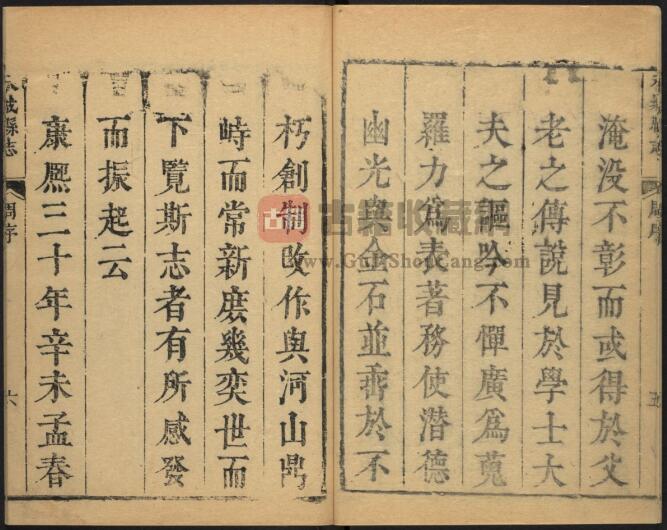 淹没不彰而或得於父
老之傳說見於學士大
夫之謳吟不憚廣爲蒐
羅力爲表著務使潛德
幽光與金石並垂於不
朽創制改作與河山鼎
峙而常新庶幾奕世而
下覽斯志者有所感發
而振起云
康熙三十年辛未孟春
城縣志
周序
六
五
古籍
古籍收藏網
www.GujiShouCang.com